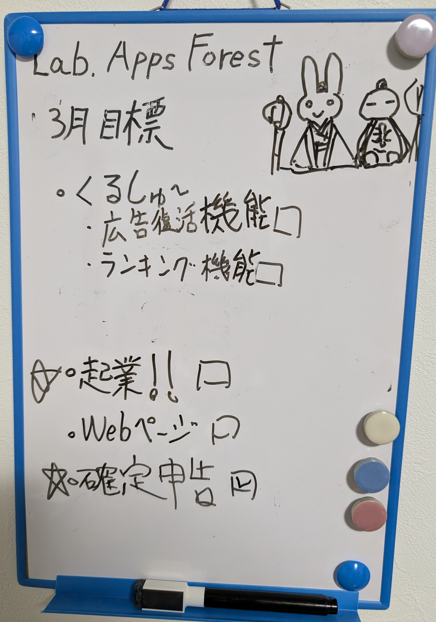 Lab. Apps Forest
3月目標
・くるしゅ〜
・広告復活機能□
・ランキング機能□
☆・起業!! □
・Webページ□
☆・確定申告☑